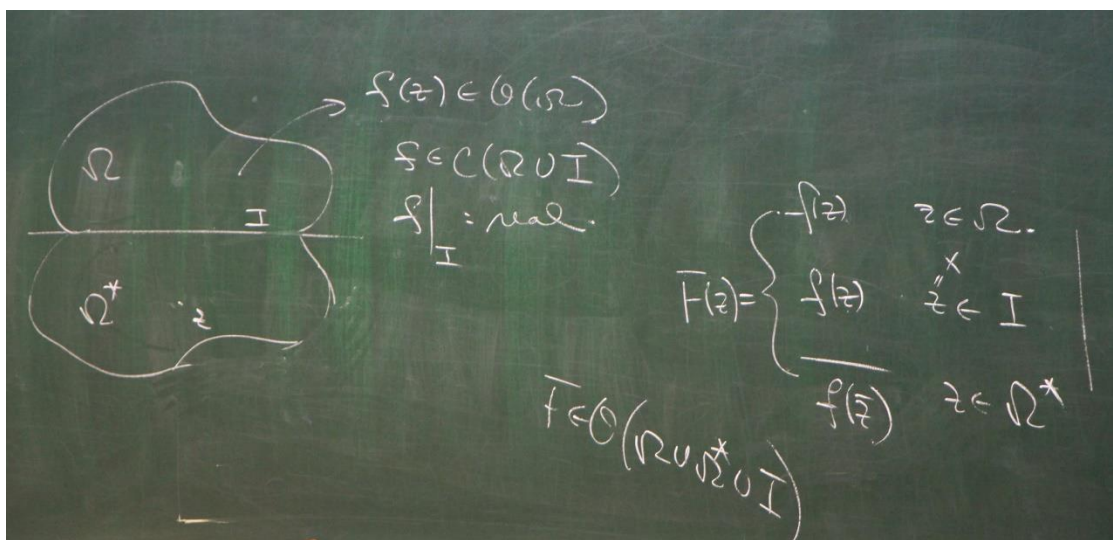 Ω
I
Ω*
z
f(z) ∈ O(Ω)
f ∈ C(Ω ∪ I)
f|_I : real.
F(z) = { f(z) z ∈ Ω.
f(z) x = z ∈ I
\overline{f(\bar{z})} z ∈ Ω*
F ∈ O(Ω ∪ Ω* ∪ I)